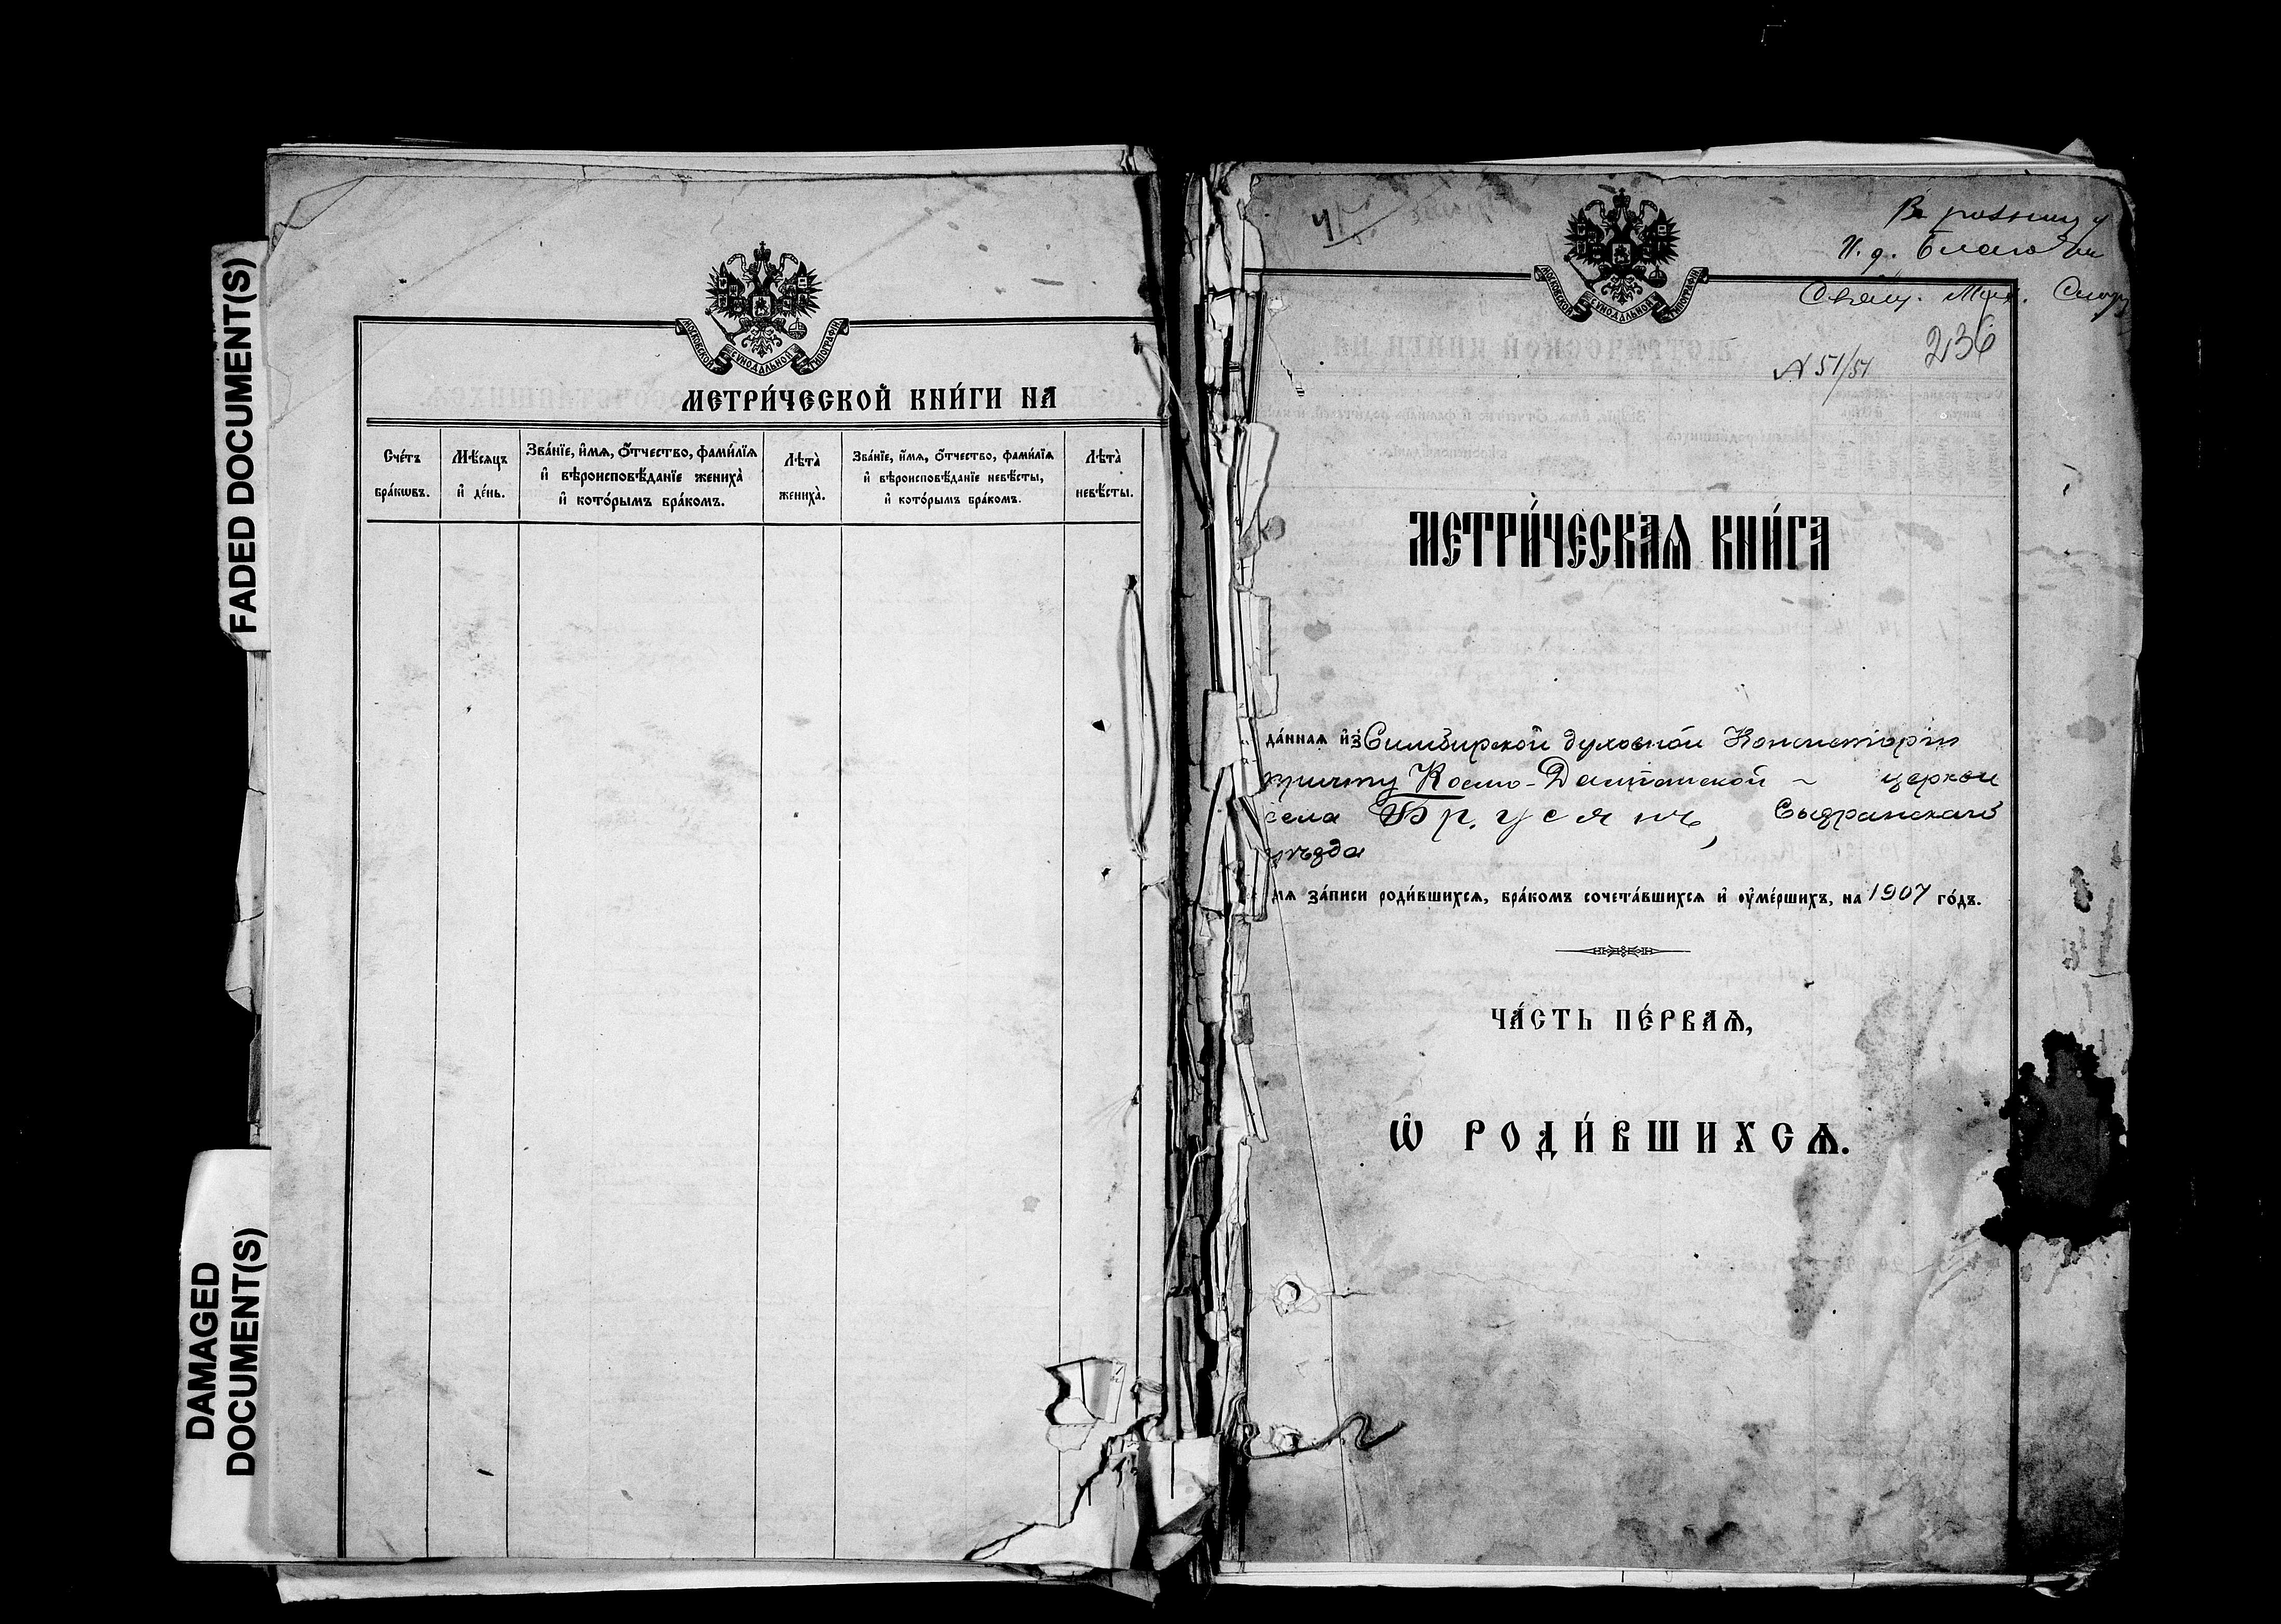 FADED DOCUMENT(S)
DAMAGED
DOCUMENT(S)
МОСКОВСКОЙ СѴНОДАЛЬНОЙ ТИПОГРАФІИ
МЕТРИ́ЧЕСКОЙ КНИ́ГИ НА
Сче́тъ
бра́кѡвъ.
Мѣ́сяцъ
и҆ де́нь.
Зва́нїе, и҆́мѧ, ѻ҆́тчество, фами́лїѧ
и҆ вѣроисповѣ́данїе жениха̀
и҆ кото́рымъ бра́комъ.
Лѣта̀
жениха̀.
Зва́нїе, и҆́мѧ, ѻ҆́тчество, фами́лїѧ
и҆ вѣроисповѣ́данїе невѣ́сты,
и҆ кото́рымъ бра́комъ.
Лѣта̀
невѣ́сты.
МОСКОВСКОЙ СѴНОДАЛЬНОЙ ТИПОГРАФІИ
И. д.
236
№ 51/51
МЕТРИ́ЧЕСКАѦ КНИ́ГА
да́нная и҆з̾ Симбирской духовной Консисторіи
причту Космо-Даміанской церкви
села Брусянъ, Сызранскаго
уѣзда
для за́писи роди́вшихсѧ, бра́комъ сочета́вшихсѧ и҆ ᲂу҆ме́ршихъ, на 1907 го́дъ.
ЧА́СТЬ ПЕ́РВАѦ,
Ѡ҆ РОДИ́ВШИХСѦ.